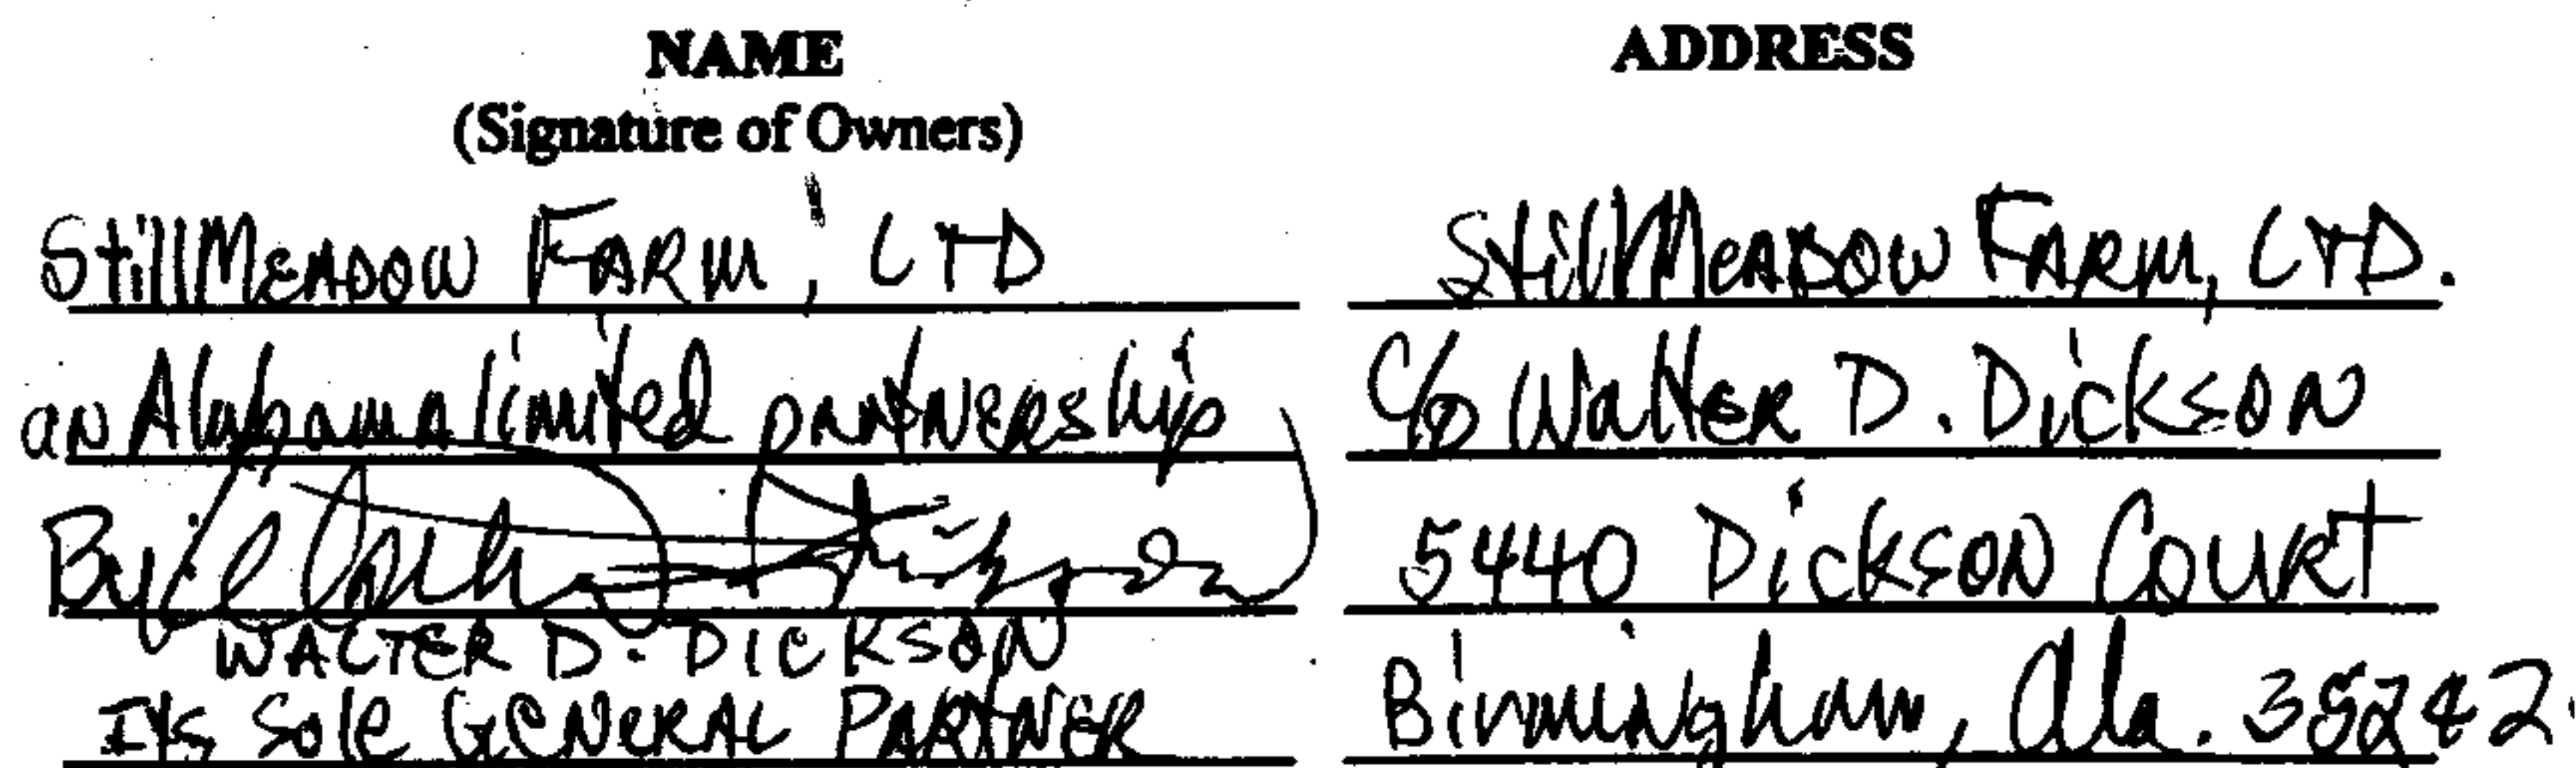 NAME
(Signature of Owners)
StillMeadow Farm, LTD
an Alabama limited partnership
By
WALTER D. DICKSON
Its Sole GENERAL PARTNER
ADDRESS
StillMeadow Farm, LTD.
c/o Walter D. Dickson
5440 Dickson Court
Birmingham, Ala. 35242